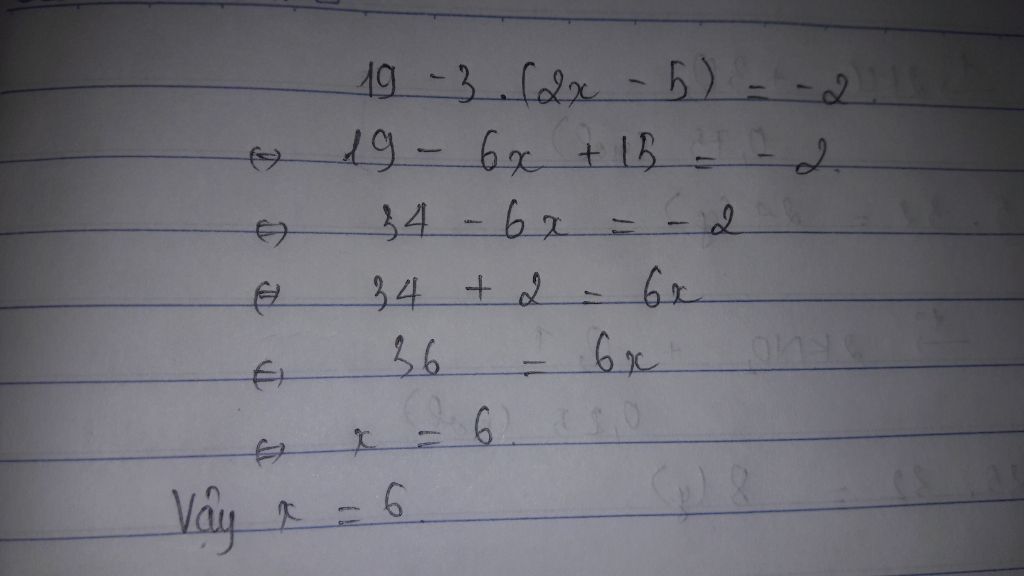 19 - 3 . (2x - 5) = -2
⇔ 19 - 6x + 15 = -2
⇔ 34 - 6x = -2
⇔ 34 + 2 = 6x
⇔ 36 = 6x
⇔ x = 6
Vậy x = 6